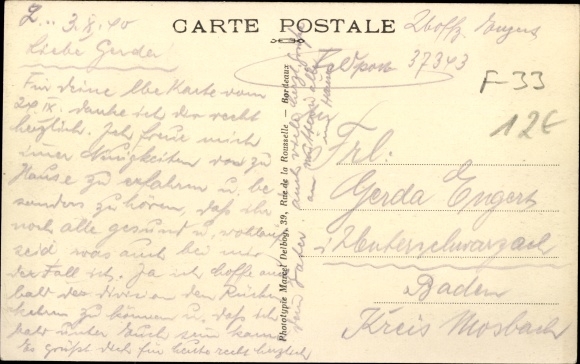 CARTE POSTALE
3.X.40
Liebe Gerda
Für deine lbe Karte vom
IX. danke ich dir recht
herzlich. Ich freue mich
immer Neuigkeiten von zu
Hause zu erfahren u. be
sonders zu hören, daß ihr
noch alle gesund u. wohlauf
seid was auch bei mir
der Fall ist. Ja ich hoffe auch
bald der division den Rücken
kehren zu können u. daß ich
bald unter Euch sein kann
Es grüßt dich für heute recht herzlich
dein Vater
Phototypie Marcel Delboy, 39, Rue de la Rousselle — Bordeaux
Feldpost 37343
F-33
12€
Frl.
Gerda Engert
Unterschwarzach
Baden
Kreis Mosbach